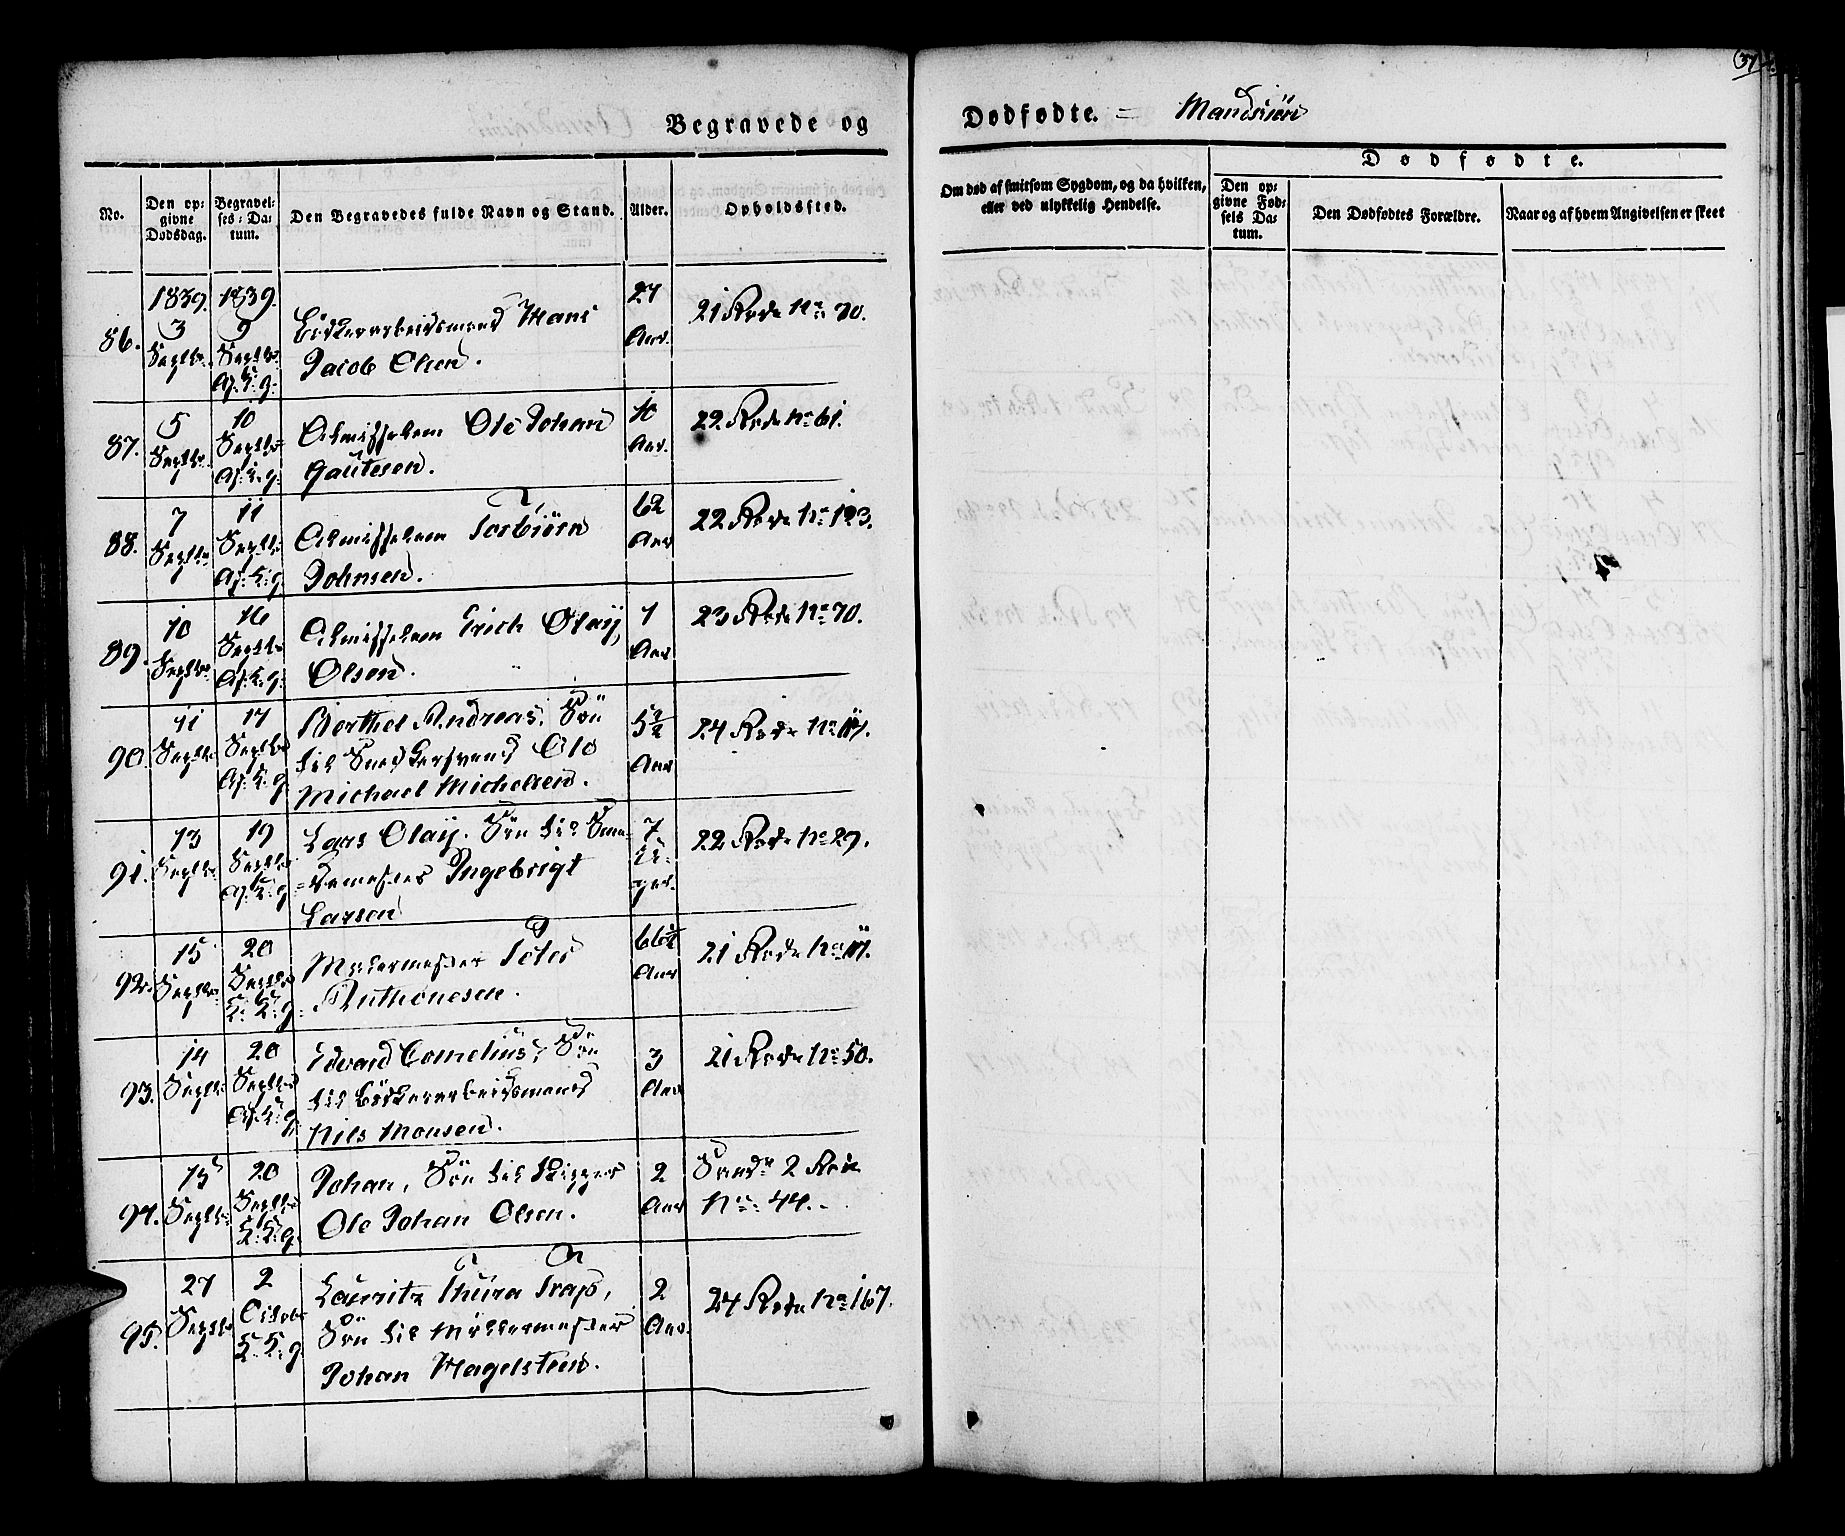 37
Begravede og
Dødfødte. = Mandkiön
No.
Den opgivne Dødsdag.
Begravelses-Datum.
Den Begravedes fulde Navn og Stand.
Alder.
Opholdssted.
Om død af smitsom Sygdom, og da hvilken, eller ved ulykkelig Hendelse.
Dødfødte.
Den opgivne Fødsels Datum.
Den Dødfødtes Forældre.
Naar og af hvem Angivelsen er skeet
1839. 1839.
86. 3 Septbr. 9 Septbr. A. K. g.
Bödkerarbeidsmand Hans
Jacob Olsen.
27 Aar.
21 Rode No 70.
87. 5 Septbr. 10 Septbr. A. K. g.
Almisselem Ole Johan
Gautesen.
10 Aar.
22 Rode No 61.
88. 7 Septbr. 11 Septbr. A. K. g.
Almisselem Torbiörn
Johnsen.
62 Aar
22 Rode No 123.
89. 10 Septbr. 16 Septbr. A. K. g.
Almisselem Erich Olay,
Olsen.
1 Aar
23 Rode No 70.
90. 11 Septbr. 17 Septbr. A. K. g.
Berthel Andreas, Sön
til Snedkersvend Ole
Michael Michelsen.
Aar
24 Rode No 17.
91. 13 Septbr. 19 Septbr. A. K. g.
Lars Olay, Sön til
Ingebrigt
Larsen
7 Uger.
22 Rode No 29.
92. 15 Septbr. 20 Septbr. K. K. g.
Peter
Anthonesen.
66¼ Aar
21 Rode No 17.
93. 14 Septbr. 20 Septbr. A. K. g.
Edvard Cornelius, Sön
til Bödkerarbeidsmand
Nils Monsen.
3 Aar
21 Rode No 50.
94. 15 Septbr. 20 Septbr. K. K. g.
Johan, Sön til Skipper
Ole Johan Olsen.
2 Aar
Sandv. 2 Rode
No 44.
95. 27 Septbr. 2 Octobr. K. K. g.
Lauritz Thura Trap,
Sön til Mæklermester
Johan Hagelsteen.
2 Aar.
24 Rode No 167.